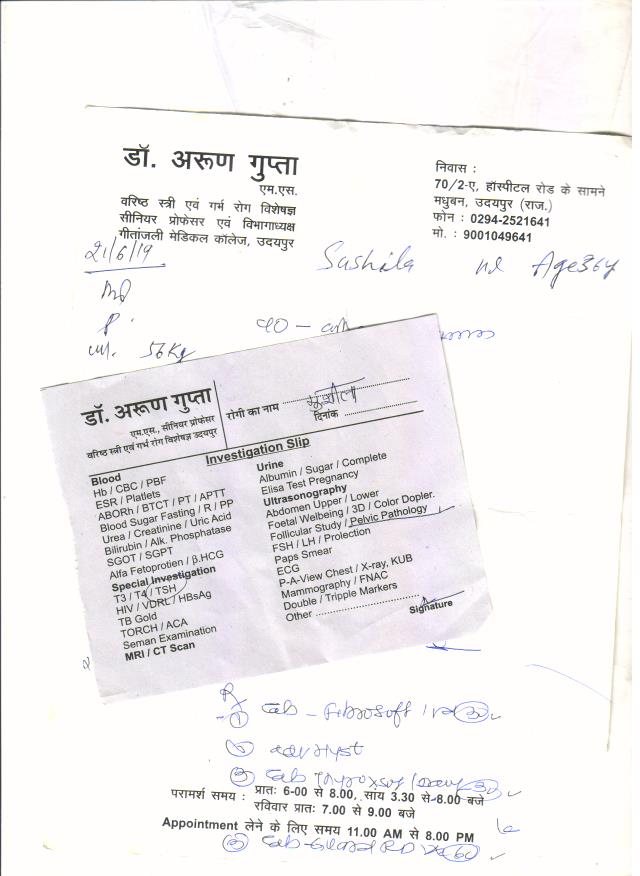 डॉ. अरूण गुप्ता
एम.एस.
वरिष्ठ स्त्री एवं गर्भ रोग विशेषज्ञ
सीनियर प्रोफेसर एवं विभागाध्यक्ष
गीतांजली मेडिकल कॉलेज, उदयपुर
निवास :
70/2-ए, हॉस्पीटल रोड के सामने
मधुबन, उदयपुर (राज.)
फोन : 0294-2521641
मो. : 9001049641
21/6/19
Sushila Age 36y
56Kg
डॉ. अरूण गुप्ता
एम.एस., सीनियर प्रोफेसर
वरिष्ठ स्त्री एवं गर्भ रोग विशेषज्ञ उदयपुर
रोगी का नाम सुशीला
दिनांक
Investigation Slip
Blood
Hb / CBC / PBF
ESR / Platlets
ABORh / BTCT / PT / APTT
Blood Sugar Fasting / R / PP
Urea / Creatinine / Uric Acid
Bilirubin / Alk. Phosphatase
SGOT / SGPT
Alfa Fetoprotien / β.HCG
Special Investigation
T3 / T4 / TSH
HIV / VDRL / HBsAg
TB Gold
TORCH / ACA
Seman Examination
MRI / CT Scan
Urine
Albumin / Sugar / Complete
Elisa Test Pregnancy
Ultrasonography
Abdomen Upper / Lower
Foetal Welbeing / 3D / Color Dopler.
Follicular Study / Pelvic Pathology
FSH / LH / Prolection
Paps Smear
ECG
P-A-View Chest / X-ray, KUB
Mammography / FNAC
Double / Tripple Markers
Other
Signature
परामर्श समय : प्रातः 6-00 से 8.00, सांय 3.30 से 8.00 बजे
रविवार प्रातः 7.00 से 9.00 बजे
Appointment लेने के लिए समय 11.00 AM से 8.00 PM